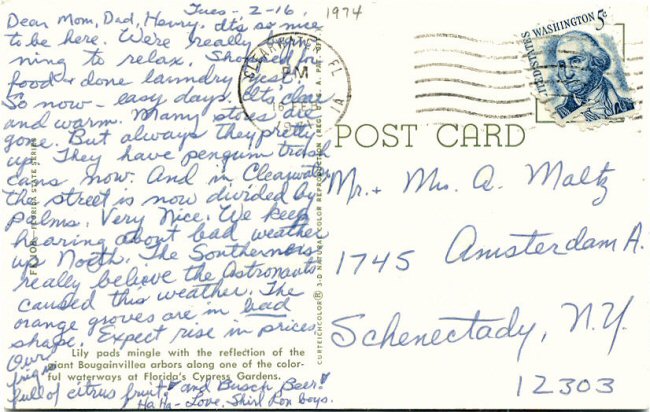 Tues - 2-16,
1974
Dear Mom, Dad, Henry. It's so nice
to be here. We're really
ning to relax. Shopped for
food & done laundry yest.
So now - easy days. It's clear
and warm. Many stores are
gone. But always they pretty
up. They have penguin trash
cans now. And in Clearwater
the street is now divided by
palms. Very Nice. We keep
hearing about bad weather
up North. The Southerners
really believe the Astronauts
caused this weather. The
orange groves are in bad
shape. Expect rise in prices.
Our
Lily pads mingle with the reflection of the
giant Bougainvillea arbors along one of the color-
ful waterways at Florida's Cypress Gardens.
full of citrus fruit! and Busch Beer!
Ha Ha - Love, Shirl Ron boys.
FLORIDA STATE SERIES
CURTEICHCOLOR® 3-D NATURAL COLOR REPRODUCTION (REG. U.S.A. PAT. OFF.)
CLEARWATER, FL
PM
16 FEB
UNITED STATES
WASHINGTON 5c
POST CARD
Mr. & Mrs. A. Maltz
1745 Amsterdam A.
Schenectady, N.Y.
12303